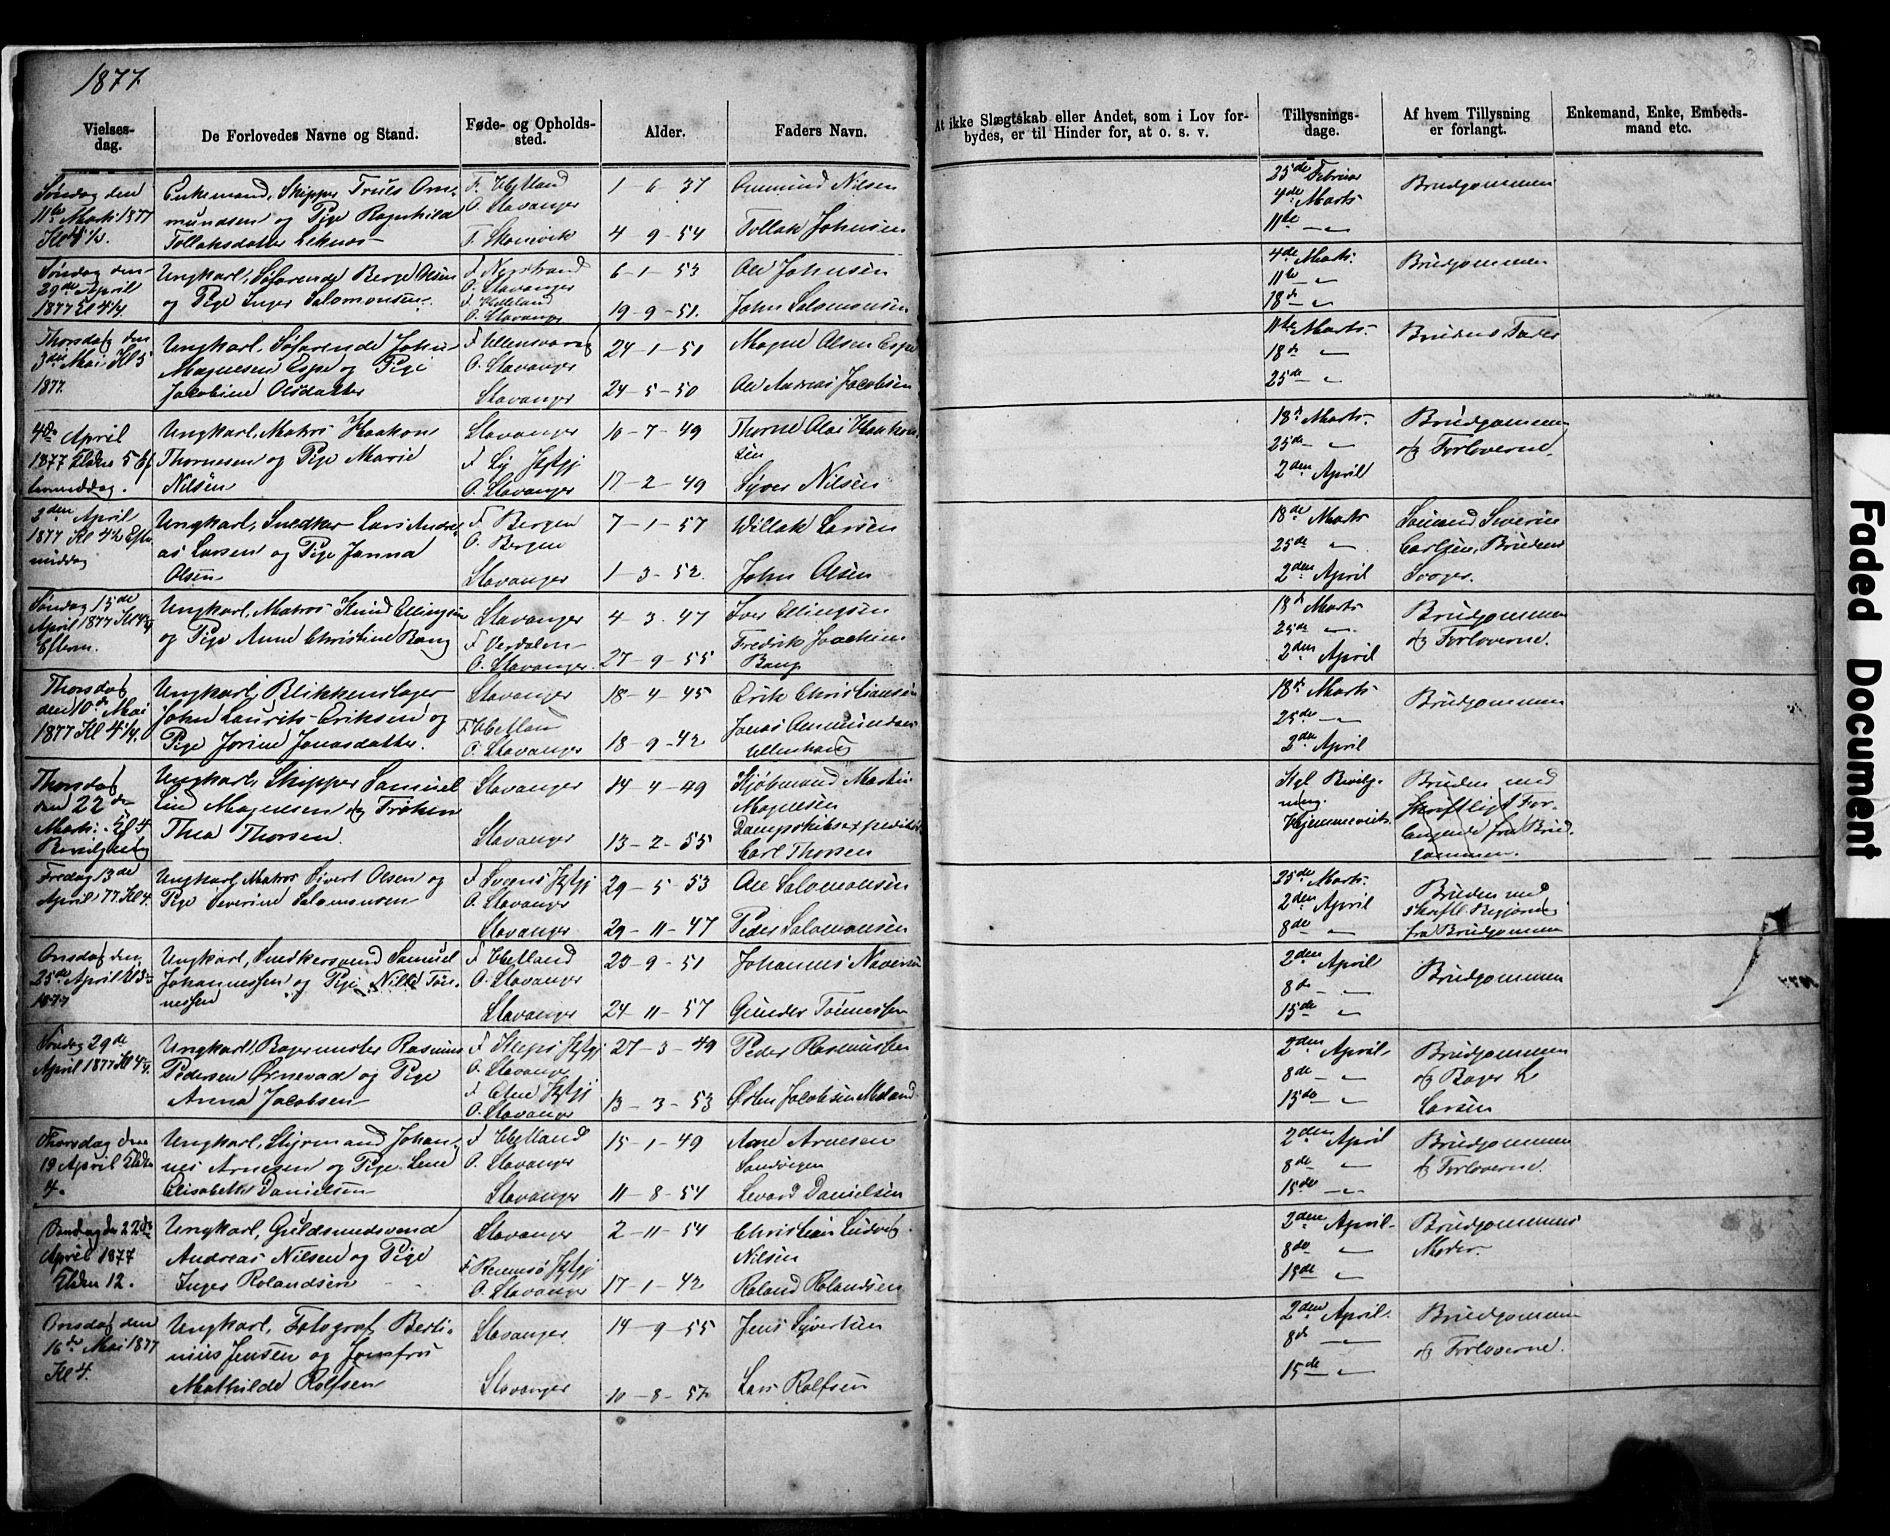 1877.
3
Vielses-
dag.
De Forlovedes Navne og Stand.
Føde- og Opholds-
sted.
Alder.
Faders Navn.
At ikke Slægtskab eller Andet, som i Lov for-
bydes, er til Hinder for, at o. s. v.
Tillysnings-
dage.
Af hvem Tillysning
er forlangt.
Enkemand, Enke, Embeds-
mand etc.
Søndag den
11te Marts 1877
Enkemand, Skipper Truls Om-
mundsen og Pige Ragnhild
Tollaksdatter Leknes
F. Hetland
O. Stavanger
F. Skonevik
1 - 6 - 37
4 - 9 - 54
Ommund Nilsen
Tollak Johnsen
25de Februar
4de Marts
11te - " -
Brudgommen
Søndag den
29de April
1877 Kl 4 1/4
Ungkarl, Søfarende Berge Olsen
og Pige Inger Salomonsen.
F. Nerstrand
O. Stavanger
F. Hetland
O. Stavanger
6 - 1 - 53
19 - 9 - 51.
Ole Johnsen
John Salomonsen
4de Marts.
11te - " -
18de - " -
Brudgommen
Thorsdag den
3die Mai Kl 5
1877.
Ungkarl, Søfarende John
Magnesen Espe og Pige
Jacobine Olsdatter
F. Ullensvang
O. Stavanger
Stavanger
24 - 1 - 51
24 - 5 - 50
Magne Olsen Espe
Ole Andreas Jacobsen
11te Marts.
18de "
25de - " -
Brudens Fader
4de April
1877 Klokken 5 Ef
termiddag.
Ungkarl, Matros Haakon
Thornesen og Pige Marie
Nilsen
Stavanger
F. Ly Prstgj
O. Stavanger
10 - 7 - 49
17 - 2 - 49
Thorne Olai Haakon-
sen
Syver Nilsen
18de Marts.
25de - " -
2den April
Brudgommen
og Forloverne.
2den April
1877 Kl 4 1/2 Efter
middag
Ungkarl, Snedker Lars Andre-
as Larsen og Pige Janna
Olsen
F. Bergen
O. Bergen
Stavanger
7 - 1 - 57
1 - 3 - 52.
Willak Larsen
John Olsen
18de Marts
25de "
2den April
Severin
Carlsen, Brudens
Svoger.
Søndag 15de
April 1877 Kl 4 1/4
Efterm.
Ungkarl, Matros Knud Ellingsen
og Pige Anne Christine Bang
Stavanger
F. Verdalen
O. Stavanger.
4 - 3 - 47
27 - 9 - 55
Iver Ellingsen
Fredrik Joachim
Bang
18de Marts
25de - " -
2den April
Brudgommen
og Forloverne.
Thorsdag
den 10de Mai
1877 Kl 4 1/4.
Ungkarl, Blikkenslager
John Laurits Eriksen og
Pige Jorine Jonasdatter.
Stavanger
F. Hetland
O. Stavanger
18 - 4 - 45
18 - 9 - 42
Erik Christiansen
Jonas Ommundsen
Ullenhaug
18de Marts
25de - " -
2den April
Brudgommen
Thorsdag
den 22de
Marts. Kl 4
Bevilgning
Ungkarl, Skipper Samuel
Lind Magnesen og Frøken
Thea Thorsen.
Stavanger
Stavanger
14 - 4 - 49
13 - 2 - 55
Kjøbmand Martin
Magnesen
Dampskibsexpeditør
Carl Thorsen
Kgl. Bevilg-
ning.
Hjemmevies.
Bruden med
skriftligt For-
langende fra Brud-
gommen.
Fredag 13de
April 77 Kl 4.
Ungkarl, Matros Sivert Olsen og
Pige Severine Salomonsen
F. Sogns Prstgj
O. Stavanger
Stavanger
29 - 5 - 53
29 - 11 - 47
Ole Salomonsen
Peder Salomonsen
25de Marts.
2den April
8de "
Bruden med
skriftl. Begjæring
fra Brudgommen
Onsdag den
25de April
1877
Ungkarl, Snedkersvend Samuel
Johannessen og Pige Nille Tøn-
nessen
F. Hetland
O. Stavanger
Stavanger
23 - 9 - 51
24 - 11 - 57
Johannes
Gunder Tønnessen
2den April
8de - " -
15de - " -
Brudgommen
Søndag 29de
April 1877 Kl 4 1/4.
Ungkarl, Bagermester Rasmus
Pedersen Ørnevad og Pige
Anna Jacobsen
F. Kleps Prstgj
O. Stavanger
F. Etne Prstgj
O. Stavanger
27 - 3 - 49
13 - 3 - 53
Peder Rasmussen
Østen Jacobsen Meland
2den April
8de - " -
15de - " -
Brudgommen
og Bager L
Larsen
Thorsdag den
19 April Klokken
4.
Ungkarl, Styrmand Johan-
nes Arnesen og Pige Lene
Elisabeth Danielsen
F. Hetland
O. Stavanger
Stavanger
15 - 1 - 49
11 - 8 - 54
Arne Arnesen
Sandvigen
Levard Danielsen
2den April
8de "
15de - " -
Brudgommen
og Forloverne.
Søndag den 22de
April 1877
Klokken 12.
Ungkarl, Guldsmedsvend
Andreas Nilsen og Pige
Inger Rolandsen
Stavanger
F. Rennesø Prstgj
O. Stavanger
2 - 11 - 54
17 - 1 - 42
Christian Ludvig
Nilsen
Roland Rolandsen
2den April
8de "
15de "
Brudgommens
Moder.
Onsdag den
16de Mai 1877
Kl 4.
Ungkarl, Fotograf Berti-
nius Jensen og Jomfru
Mathilde Rolfsen
Stavanger
Stavanger
14 - 9 - 55
10 - 8 - 57
Jens Syvertsen
Lars Rolfsen
2den April.
8de - " -
15de - " -
Brudgommen
og Forloverne.
Faded Document